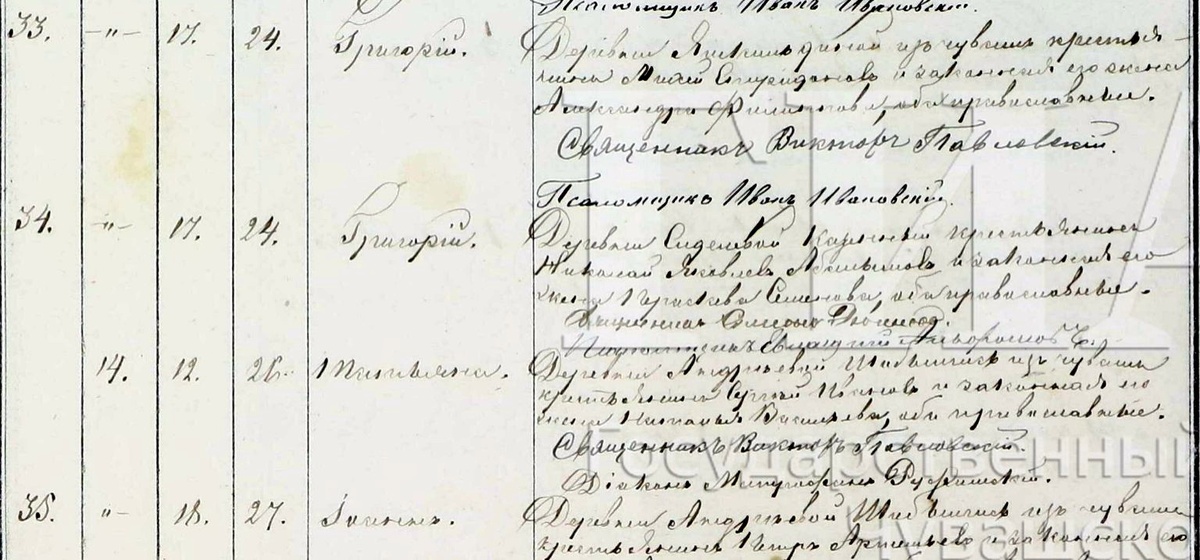 Псаломщикъ Иванъ Ивановскій.
33. —"— 17. 24. Григорій. Деревни изъ чувашъ крестья-
нинъ Спиридоновъ и законная его жена
Александра Филиппова, оба православные.
Священникъ Викторъ Павловскій.
Псаломщикъ Иванъ Ивановскій.
34. —"— 17. 24. Григорій. Деревни Сиделевой крестьянинъ
Николай Яковлевъ и законная его
жена Параскева Семенова, оба православные.
Священникъ Симеонъ
Псаломщикъ Евлампій
14. 12. 26. Деревни Андреевой изъ чувашъ
крестьянинъ Сергѣй Ивановъ и законная его
жена Наталья Васильева, оба православные.
Священникъ Викторъ Павловскій.
Діаконъ
35. " 18. 27. Іоаннъ. Деревни Андреевой изъ чувашъ
крестьянинъ Петръ и законная его
Государственный